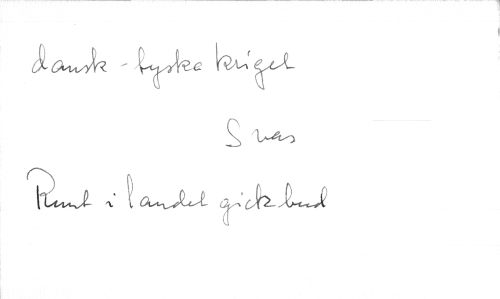 dansk-tyska kriget
S vers
Runt i landet gick bud